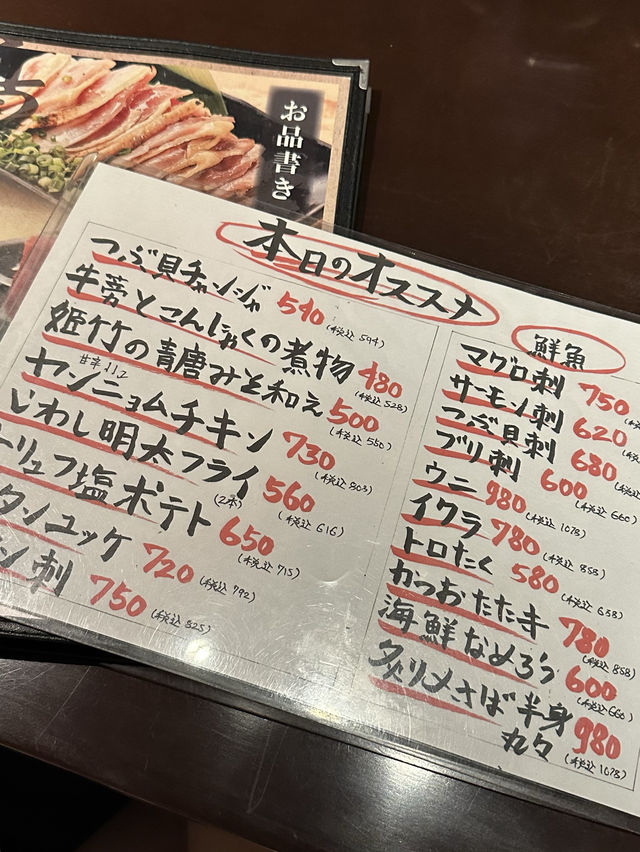 お品書き
本日のオススメ
つぶ貝チャンジャ 540 (税込 594)
牛蒡とこんにゃくの煮物 480 (税込 528)
姫竹の青唐みそ和え 500 (税込 550)
甘辛
ヤンニョムチキン 730 (税込 803)
いわし明太フライ (2本) 560 (税込 616)
トリュフ塩ポテト 650 (税込 715)
タンユッケ 720 (税込 792)
ン刺 750 (税込 825)
鮮魚
マグロ刺 750
サーモン刺 620 (税
つぶ貝刺 680 (税
ブリ刺 600 (税込 660)
ウニ 980 (税込 1078)
イクラ 780 (税込 858)
トロたく 580 (税込 638)
かつおたたキ 780 (税込 858)
海鮮なめろう 600 (税込 660)
炙り〆さば半身 980 (税込 1078)
丸々